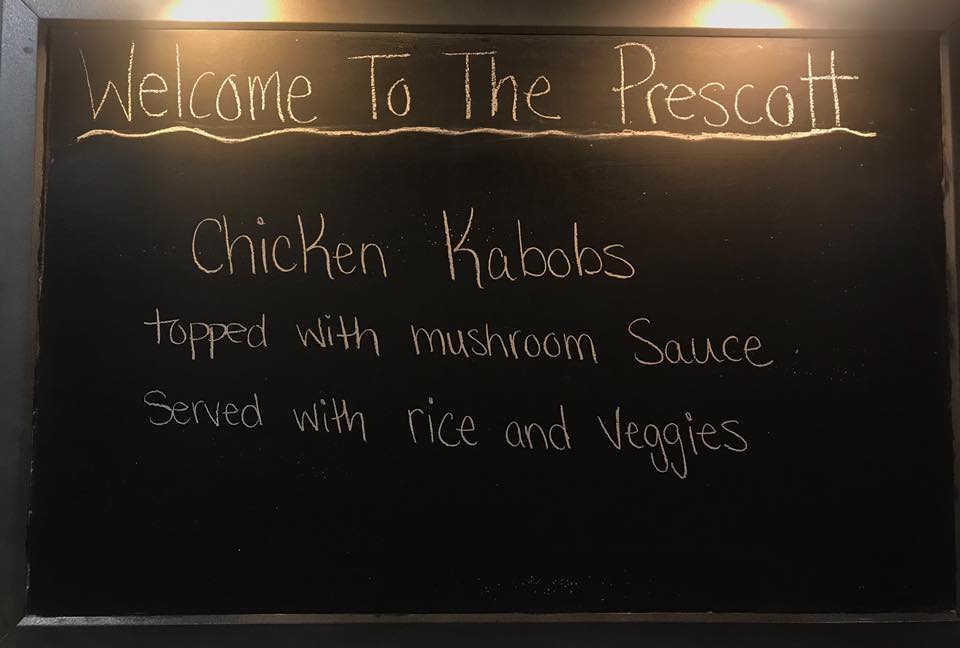 Welcome To The Prescott
Chicken Kabobs
topped with mushroom Sauce
Served with rice and Veggies